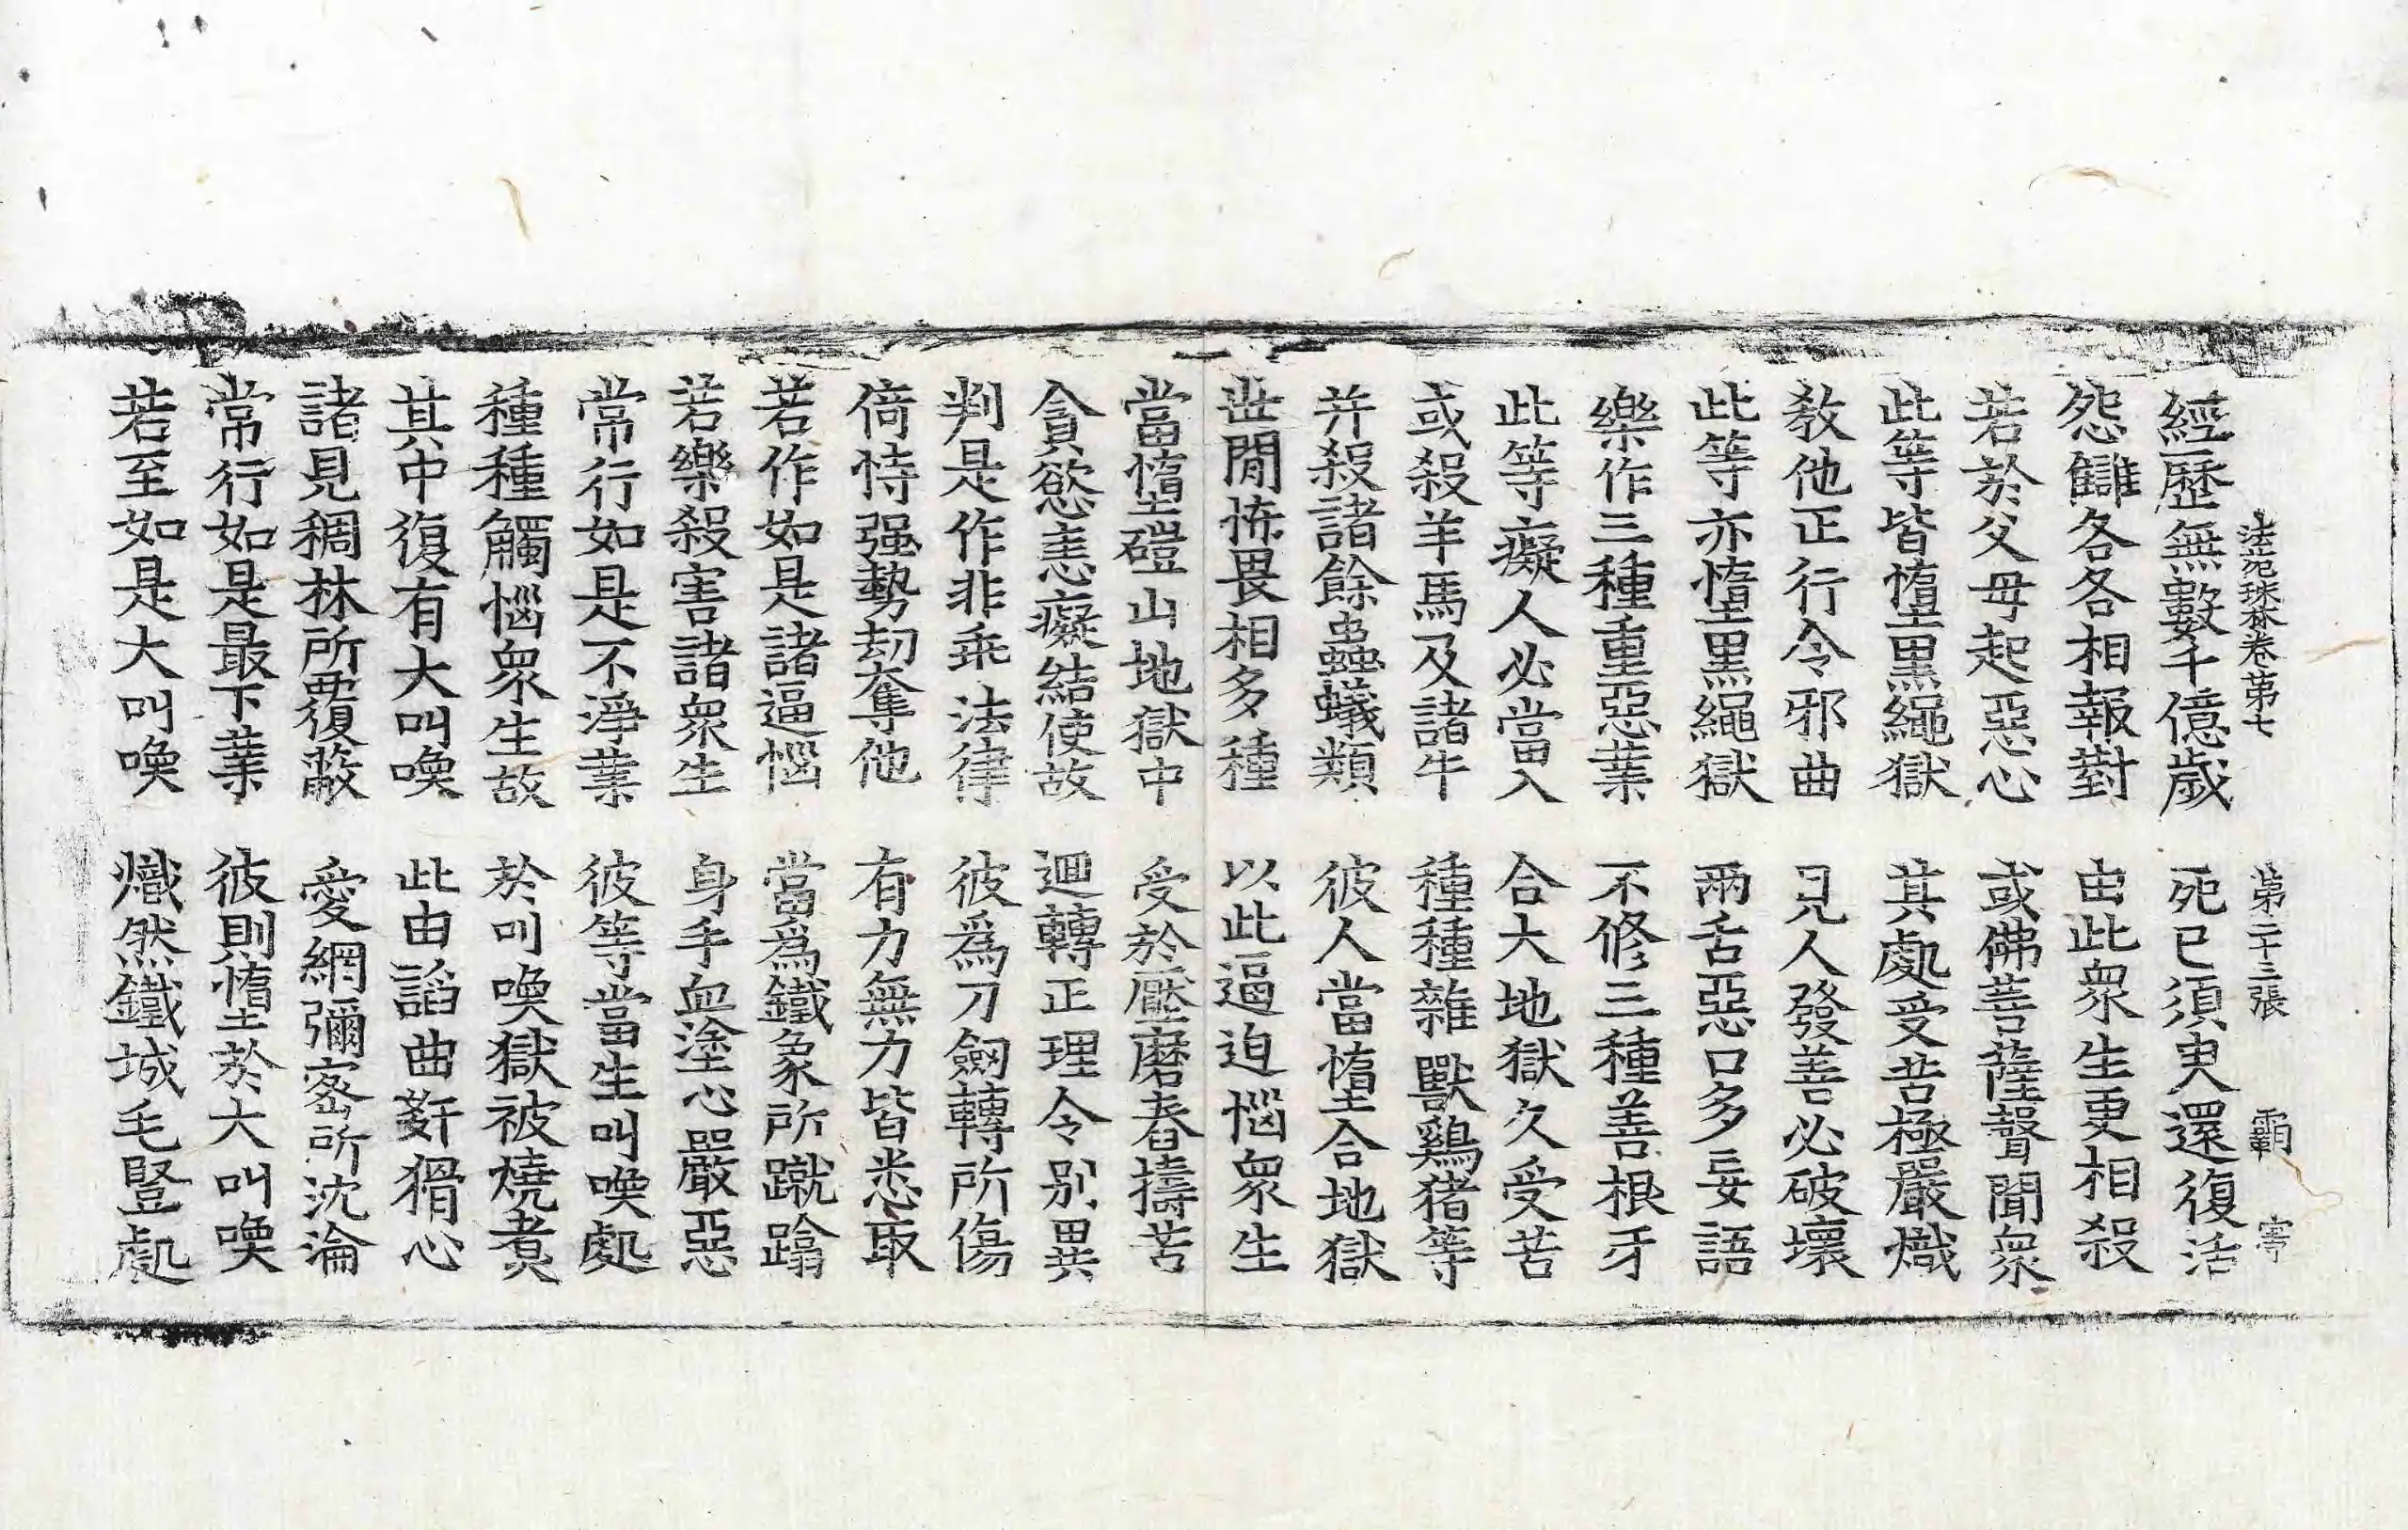 法苑珠林卷苐七　第二十三張　霸　㝯
經歷無數千億歲　死已須臾還復活
怨讎各各相報對　由此衆生更相殺
若於父母起惡心　或佛菩薩聲聞衆
此等皆憜黑繩獄　其處受苦極嚴熾
教他正行令邪曲　見人發善必破壞
此等亦憜黑繩獄　兩舌惡口多妄語
樂作三種重惡業　不修三種善根牙
此等癡人必當入　合大地獄久受苦
或殺羊馬及諸牛　種種雜獸鷄猪等
并殺諸餘蟲蟻類　彼人當憜合地獄
世閒怖畏相多種　以此逼迫惱衆生
當憜磑山地獄中　受於壓磨舂擣苦
貪慾恚癡結使故　迴轉正理令别異
判是作非乖法律　彼爲刀劒轉所傷
倚恃强勢劫奪他　有力無力皆悉取
若作如是諸逼惱　當爲鐵象所蹴蹋
若樂殺害諸衆生　身手血塗心嚴惡
常行如是不淨業　彼等當生叫喚處
種種觸惱衆生故　於叫喚獄被燒煮
其中復有大叫喚　此由諂曲姧猾心
諸見稠林所覆蔽　愛網彌密所沈淪
常行如是最下業　彼則憜於大叫喚
若至如是大叫喚　熾然鐵城毛豎處